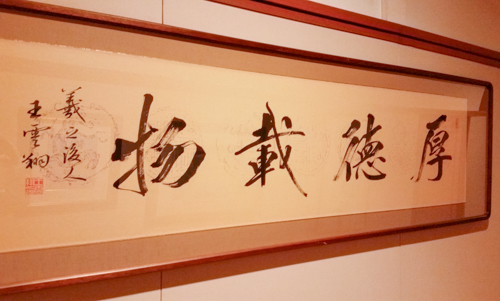 厚德載物
羲之後人
王雲翔